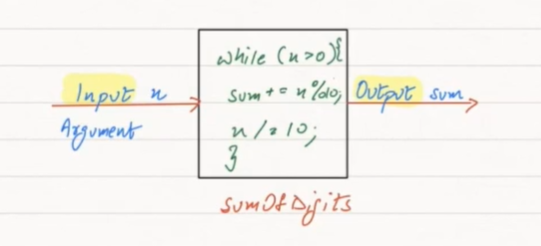 while (n>0){
Input n
sum += n%10;
Output sum
Argument
n /= 10;
}
sumOfDigits